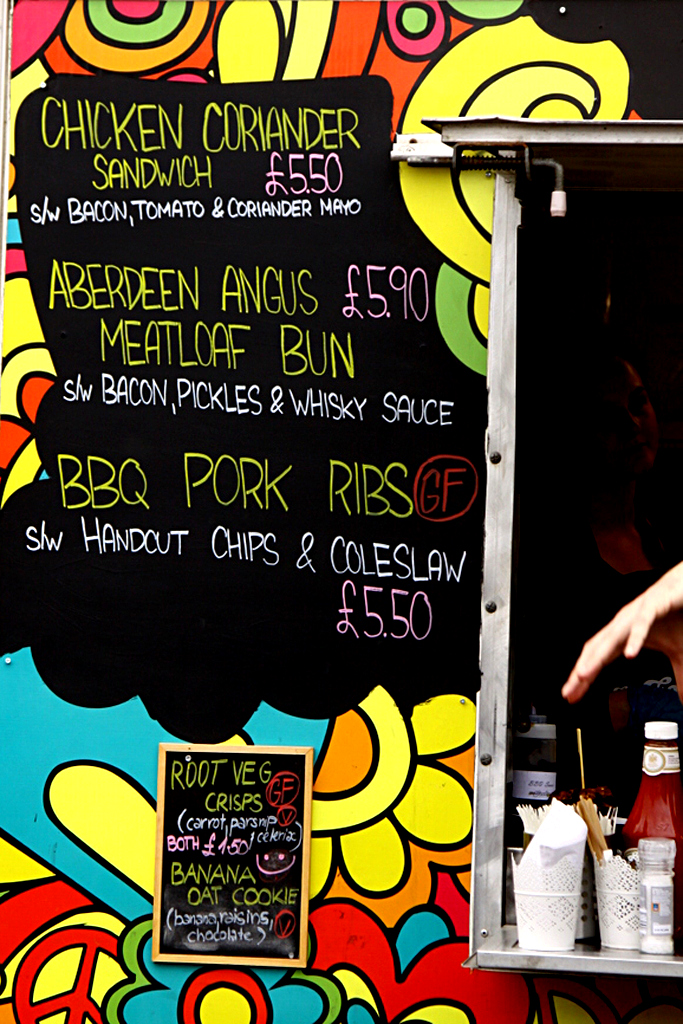 CHICKEN CORIANDER
SANDWICH £5.50
s/w BACON, TOMATO & CORIANDER MAYO
ABERDEEN ANGUS £5.90
MEATLOAF BUN
s/w BACON, PICKLES & WHISKY SAUCE
BBQ PORK RIBS GF
s/w HANDCUT CHIPS & COLESLAW
£5.50
ROOT VEG
CRISPS GF
(carrot, parsnip, V
BOTH £1.50 celeriac)
BANANA
OAT COOKIE
(banana, raisins, V
chocolate)